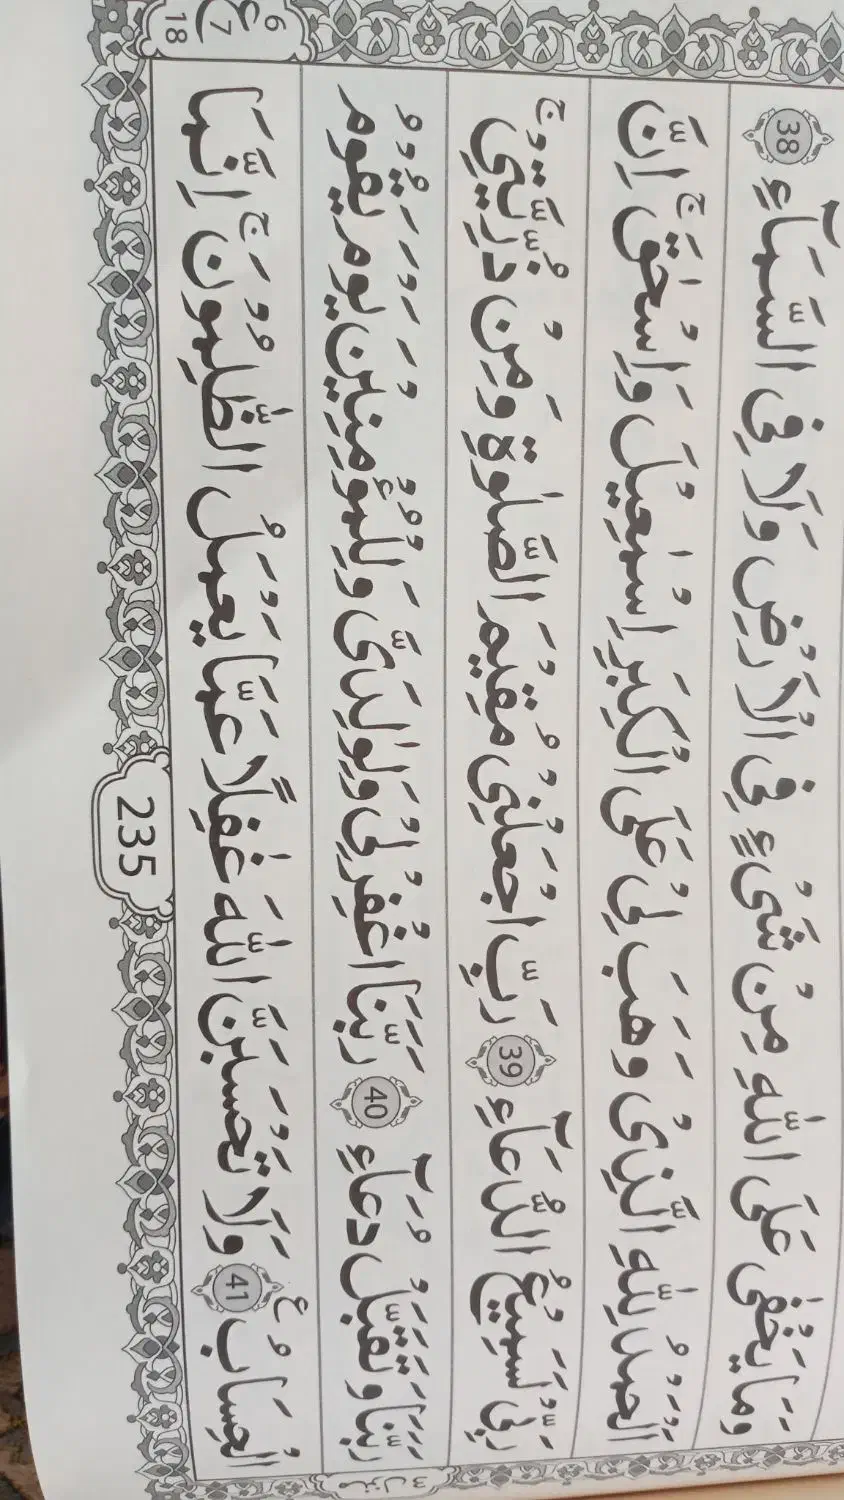 وَمَا يَخْفٰى عَلَى اللّٰهِ مِنْ شَىْءٍ فِى الْاَرْضِ وَلَا فِى السَّمَآءِ 38
اَلْحَمْدُ لِلّٰهِ الَّذِىْ وَهَبَ لِىْ عَلَى الْكِبَرِ اِسْمٰعِيْلَ وَاِسْحٰقَ ؕ اِنَّ
رَبِّىْ لَسَمِيْعُ الدُّعَآءِ 39 رَبِّ اجْعَلْنِىْ مُقِيْمَ الصَّلٰوةِ وَمِنْ ذُرِّيَّتِىْ ۖ
رَبَّنَا وَتَقَبَّلْ دُعَآءِ 40 رَبَّنَا اغْفِرْ لِىْ وَلِوَالِدَىَّ وَلِلْمُؤْمِنِيْنَ يَوْمَ يَقُوْمُ
الْحِسَابُ 41 وَلَا تَحْسَبَنَّ اللّٰهَ غٰفِلًا عَمَّا يَعْمَلُ الظّٰلِمُوْنَ ؕ اِنَّمَا
6
ع 7
18
منزل ۳
235